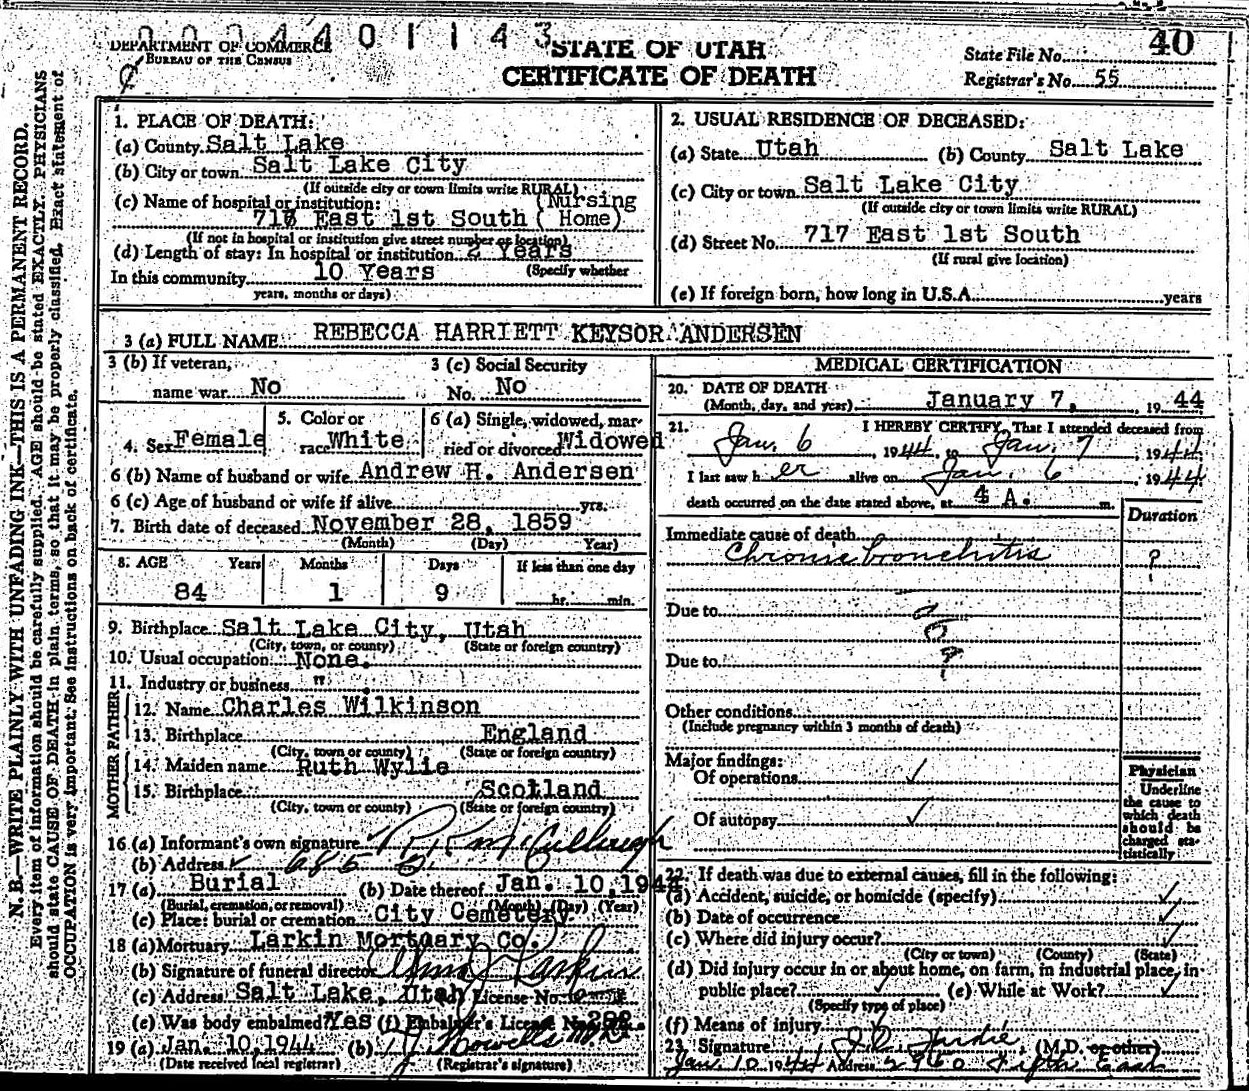 0004401143
DEPARTMENT OF COMMERCE
BUREAU OF THE CENSUS
STATE OF UTAH
CERTIFICATE OF DEATH
40
State File No.
Registrar's No. 55
N. B.—WRITE PLAINLY WITH UNFADING INK—THIS IS A PERMANENT RECORD.
Every item of information should be carefully supplied. AGE should be stated EXACTLY. PHYSICIANS
should state CAUSE OF DEATH in plain terms, so that it may be properly classified. Exact statement of
OCCUPATION is very important. See instructions on back of certificate.
1. PLACE OF DEATH:
(a) County Salt Lake
(b) City or town Salt Lake City
(If outside city or town limits write RURAL)
(c) Name of hospital or institution: (Nursing
717 East 1st South ( Home)
(If not in hospital or institution give street number or location)
(d) Length of stay: In hospital or institution 2 Years
In this community 10 Years (Specify whether
years, months or days)
2. USUAL RESIDENCE OF DECEASED:
(a) State Utah (b) County Salt Lake
(c) City or town Salt Lake City
(If outside city or town limits write RURAL)
(d) Street No. 717 East 1st South
(If rural give location)
(e) If foreign born, how long in U.S.A. years
3 (a) FULL NAME REBECCA HARRIETT KEYSOR ANDERSEN
3 (b) If veteran, 3 (c) Social Security
name war No No. No
4. Sex Female 5. Color or race White 6 (a) Single, widowed, married or divorced Widowed
6 (b) Name of husband or wife Andrew H. Andersen
6 (c) Age of husband or wife if alive yrs.
7. Birth date of deceased November 28, 1859
(Month) (Day) Year)
8. AGE Years Months Days If less than one day
84 1 9 hr. min.
9. Birthplace Salt Lake City, Utah
(City, town, or county) (State or foreign country)
10. Usual occupation None.
11. Industry or business " .
FATHER
12. Name Charles Wilkinson
13. Birthplace England
(City, town or county) (State or foreign country)
MOTHER
14. Maiden name Ruth Wylie
15. Birthplace Scotland
(City, town or county) (State or foreign country)
16 (a) Informant's own signature McCullough
(b) Address
17 (a) Burial (b) Date thereof Jan. 10, 1944
(Burial, cremation, or removal) (Month) (Day) (Year)
(c) Place: burial or cremation City Cemetery
18 (a) Mortuary Larkin Mortuary Co.
(b) Signature of funeral director Larkin
(c) Address Salt Lake, Utah (d) License No.
(e) Was body embalmed? Yes (f) Embalmer's License No.
19 (a) Jan. 10, 1944 (b) Howells M.D.
(Date received local registrar) (Registrar's signature)
MEDICAL CERTIFICATION
20. DATE OF DEATH
(Month, day, and year) January 7, , 19 44
21. I HEREBY CERTIFY, That I attended deceased from
Jan. 6 , 1944, to Jan. 7 , 1944
I last saw h er alive on Jan. 6 , 1944
death occurred on the date stated above, at 4 A. m.
Duration
Immediate cause of death
Chronic bronchitis ?
Due to
Due to
Other conditions
(Include pregnancy within 3 months of death)
Major findings:
Of operations ✓
Of autopsy ✓
Physician
Underline
the cause to
which death
should be
charged sta-
tistically
22. If death was due to external causes, fill in the following:
(a) Accident, suicide, or homicide (specify) ✓
(b) Date of occurrence ✓
(c) Where did injury occur? ✓
(City or town) (County) (State)
(d) Did injury occur in or about home, on farm, in industrial place, in
public place? ✓ (e) While at Work? ✓
(Specify type of place)
(f) Means of injury ✓
23. Signature (M.D. or other)
Jan. 10 1944 Address Fifth East